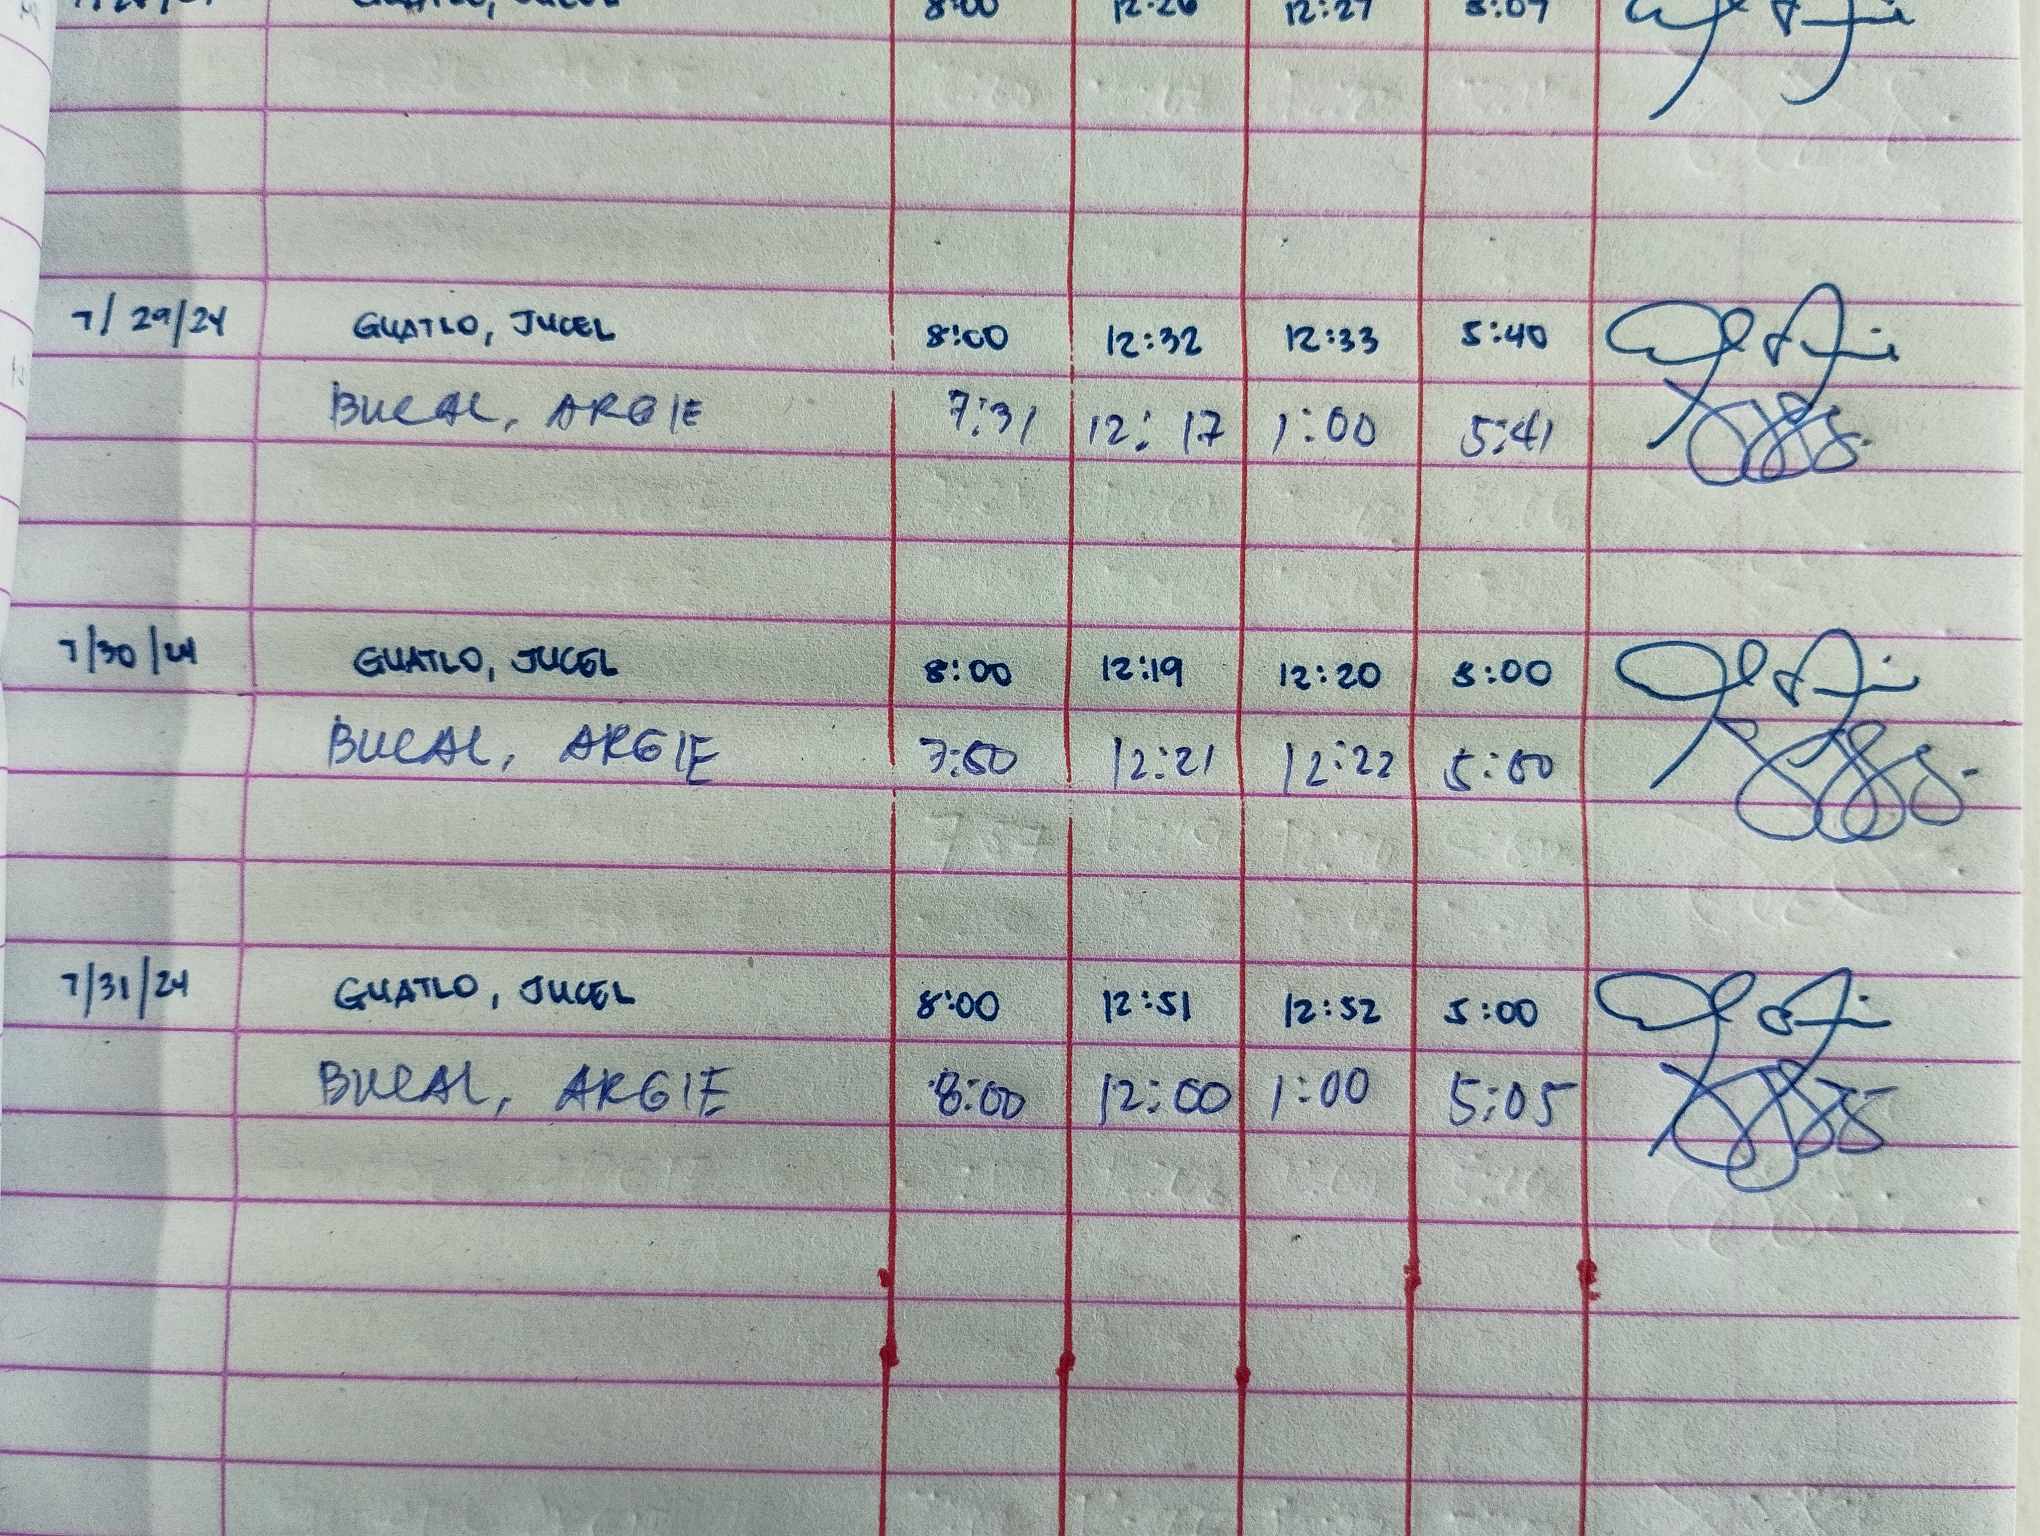 8:00 12:26 12:27 5:07
7/29/24 GUATLO, JUCEL 8:00 12:32 12:33 5:40
BUCAL, ARGIE 7:31 12:17 1:00 5:41
7/30/24 GUATLO, JUCEL 8:00 12:19 12:20 5:00
BUCAL, ARGIE 7:50 12:21 12:22 5:00
7/31/24 GUATLO, JUCEL 8:00 12:51 12:52 5:00
BUCAL, ARGIE 8:00 12:00 1:00 5:05